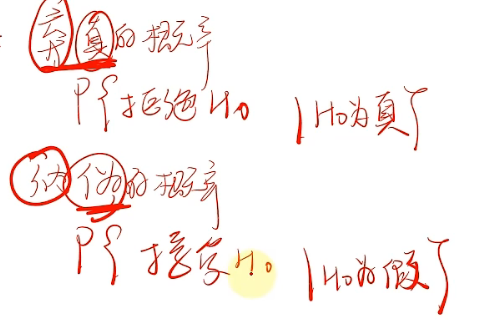 弃真的概率
P{拒绝H₀ | H₀为真}
纳伪的概率
P{接受H₀ | H₀为假}